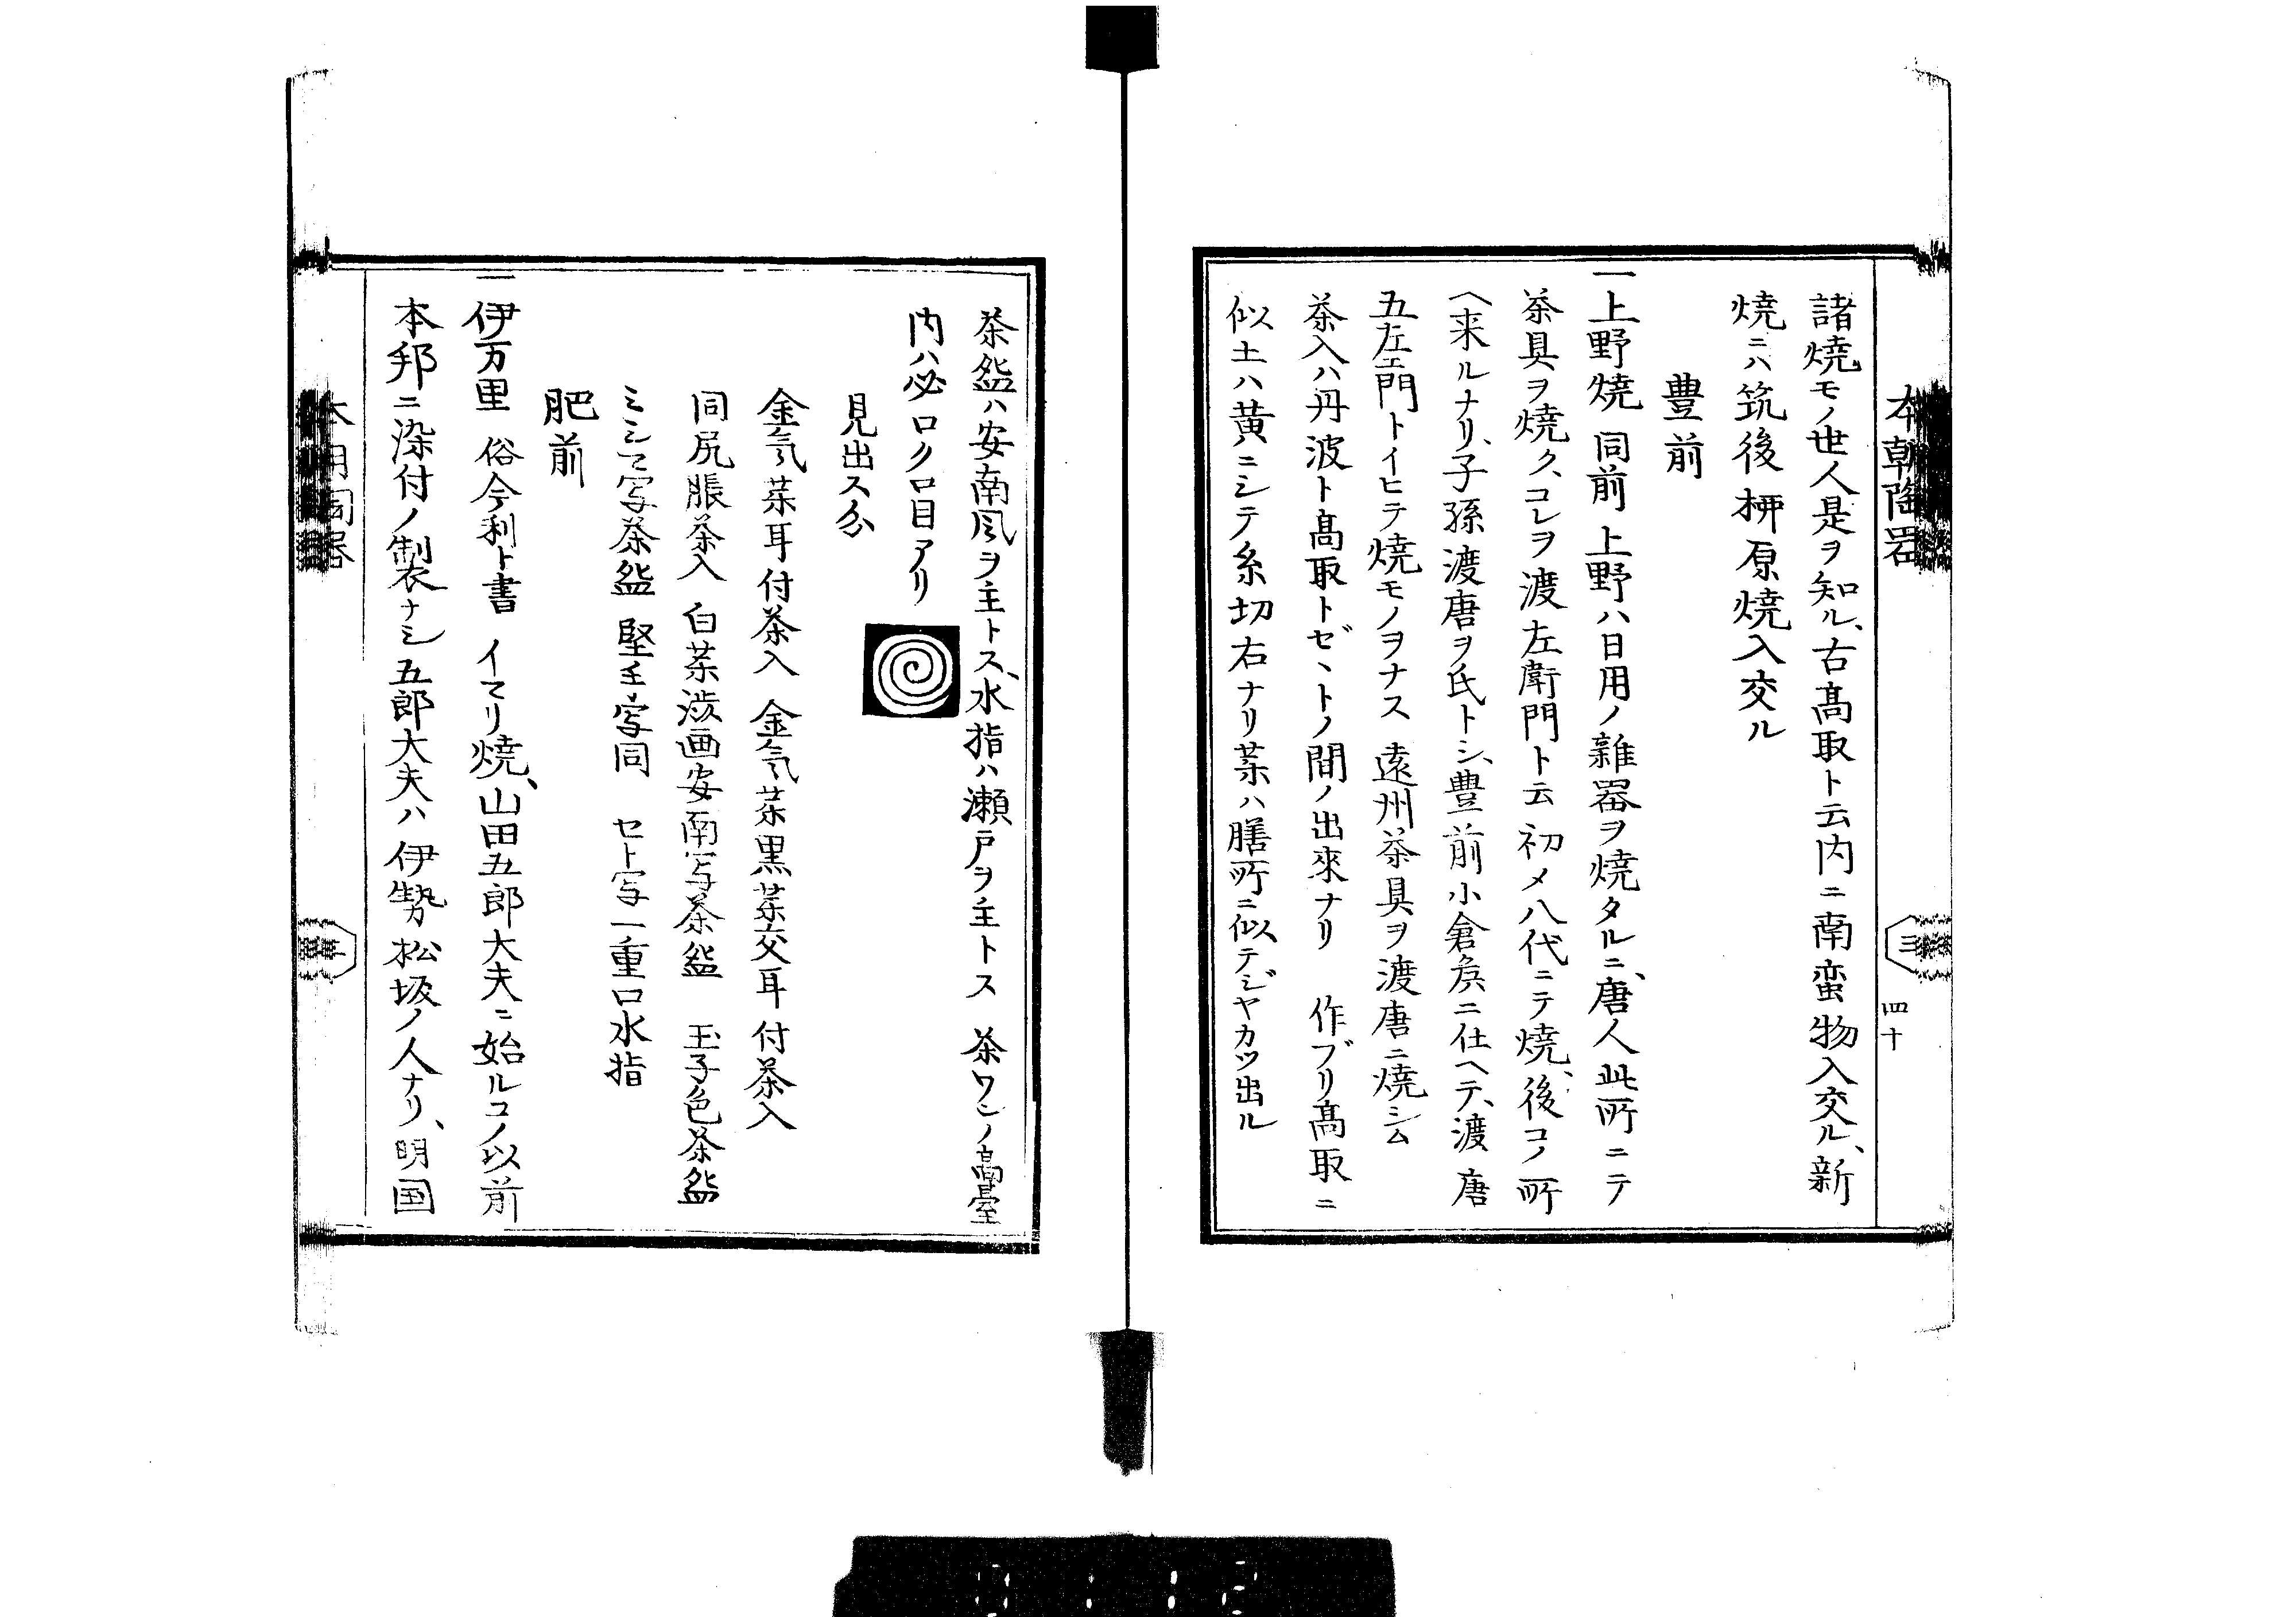 本朝陶器
三
四十
諸焼モノ世人是ヲ知ル、古髙取ト云内ニ南蛮物入交ル、新
焼ニハ筑後柳原焼入交ル
豊前
一上野焼 同前 上野ハ日用ノ雜器ヲ焼タルニ、唐人此所ニテ
茶具ヲ焼ク、コレヲ渡左衛門ト云 初メ八代ニテ焼、後コノ所
ヘ来ルナリ、子孫渡唐ヲ氏トシ、豊前小倉矦ニ仕ヘテ、渡唐
五左エ門トイヒテ焼モノヲナス 遠州茶具ヲ渡唐ニ焼シム
茶入ハ丹波ト髙取トゼヾトノ間ノ出來ナリ 作ブリ髙取ニ
似土ハ黄ニシテ糸切右ナリ葉ハ膳所ニ似テジヤカツ出ル
茶盌ハ安南風ヲ主トス、水指ハ瀬戸ヲ主トス 茶ワンノ髙臺
内ハ必ロクロ目アリ
見出ス分
金気葉耳付茶入 金気葉黒葉交耳付茶入
同尻脹茶入 白葉渋画安南写茶盌 玉子色茶盌
ミシマ写茶盌 堅手写同 セト写一重口水指
肥前
一伊万里 俗今利ト書 イマリ焼、山田五郎大夫ニ始ルコノ以前
本邦ニ染付ノ製ナシ五郎大夫ハ伊勢松坂ノ人ナリ、明国